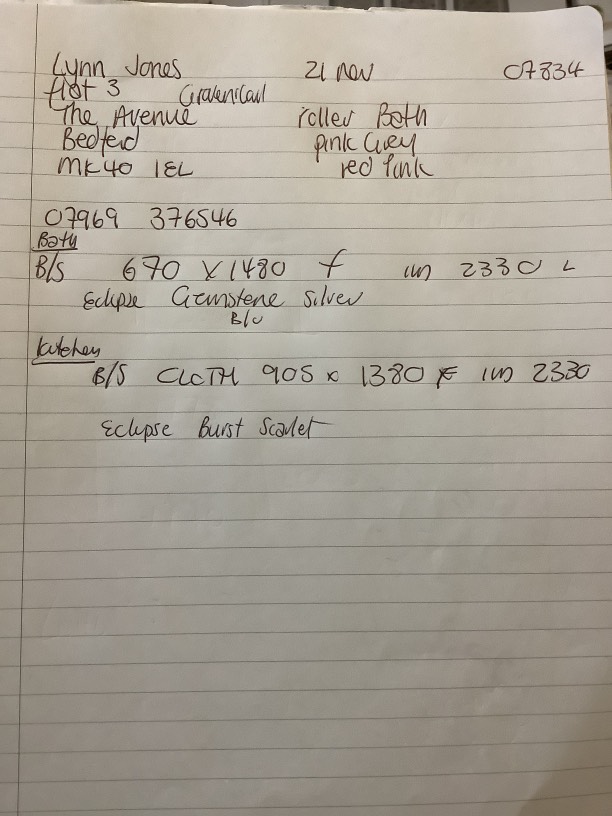 Lynn Jones 21 Nov 07834
flat 3
The Avenue roller Both
Bedford pink Grey
MK40 1EL red Pink
07969 376546
Bath
B/S 670 x 1480 f 2330 L
Eclipse Gemstone Silver
Kitchen
B/S CLOTH 905 x 1380 F 2330
Eclipse Burst Scarlet